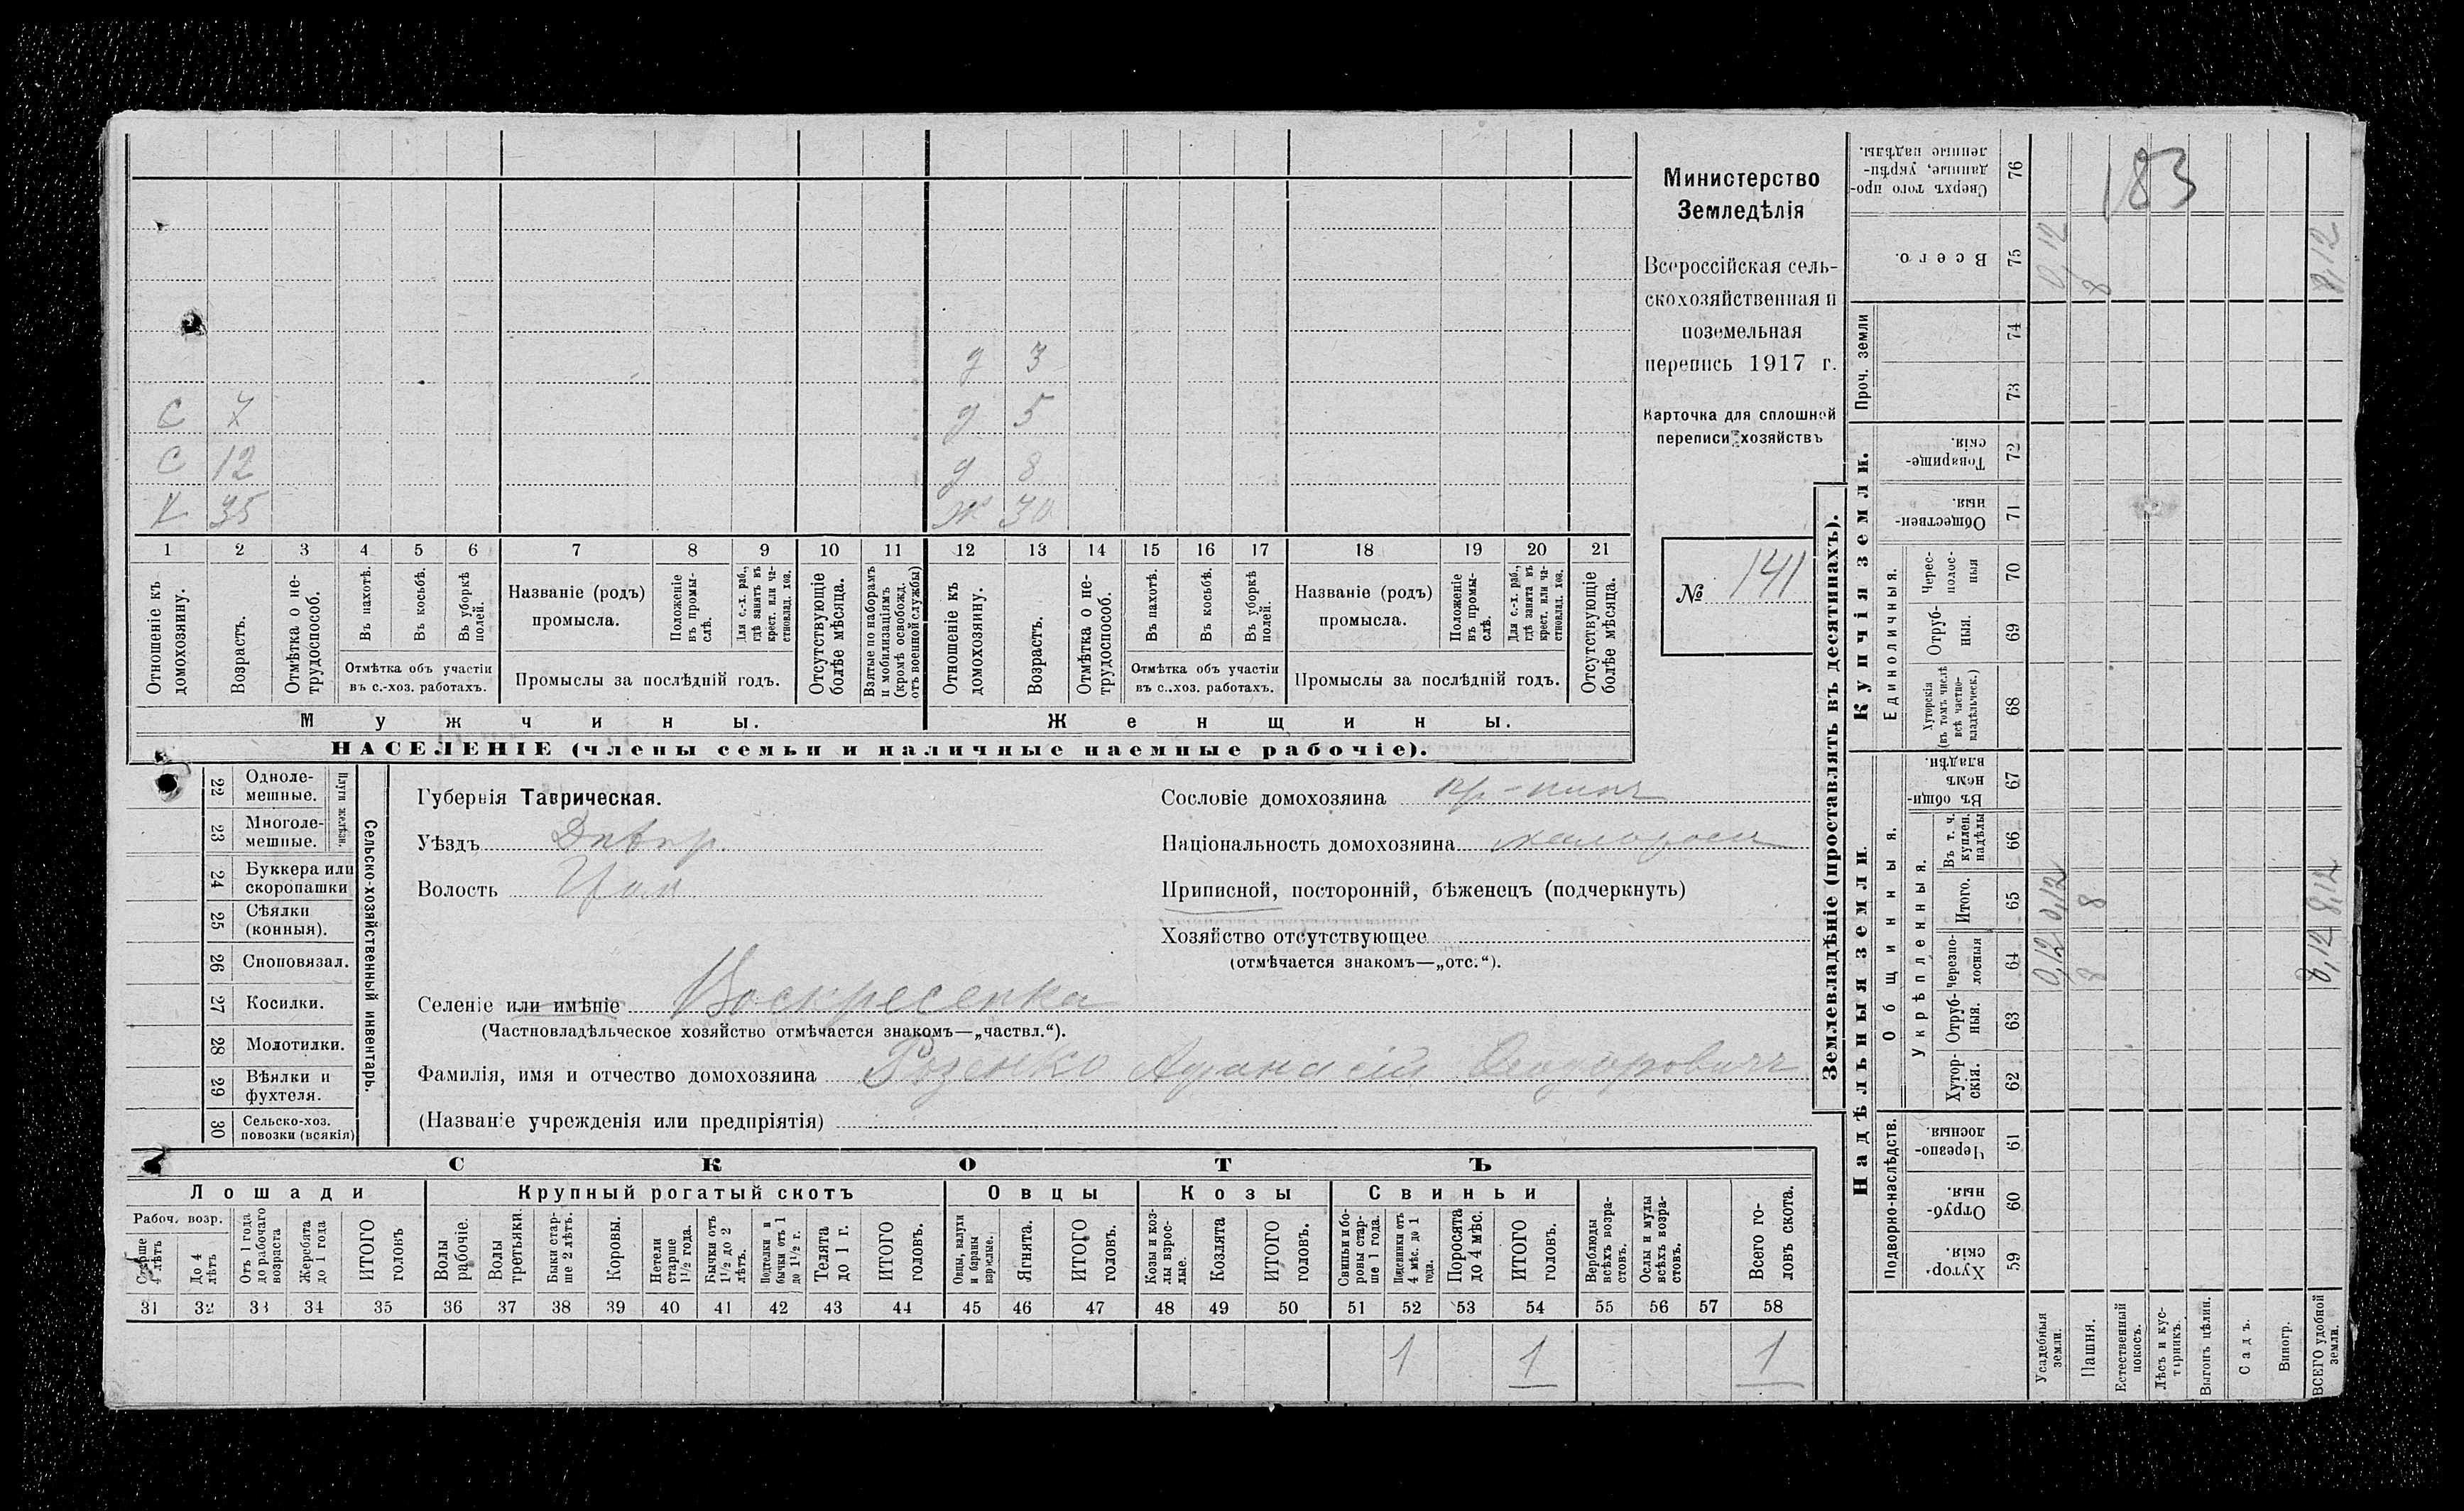 Министерство
Земледѣлія
Всероссійская сель-
скохозяйственная и
поземельная
перепись 1917 г.
Карточка для сплошной
переписи хозяйствъ
№ 141
183
д 3
С 7 д 5
С 12 д 8
Х 35 ж 30
1 2 3 4 5 6 7 8 9 10 11 12 13 14 15 16 17 18 19 20 21
Отношеніе къ домохозяину.
Возрастъ.
Отмѣтка о не-трудоспособ.
Въ пахотѣ.
Въ косьбѣ.
Въ уборкѣ полей.
Отмѣтка объ участіи
въ с.-хоз. работахъ.
Названіе (родъ)
промысла.
Положеніе въ промы-слѣ.
Для с.-х. раб., гдѣ занятъ въ крест. или ча-стновлад. хоз.
Промыслы за послѣдній годъ.
Отсутствующіе болѣе мѣсяца.
Взятые по наборамъ и мобилизаціямъ (кромѣ освобожд. отъ военной службы)
Отношеніе къ домохозяину.
Возрастъ.
Отмѣтка о не-трудоспособ.
Въ пахотѣ.
Въ косьбѣ.
Въ уборкѣ полей.
Отмѣтка объ участіи
въ с.-хоз. работахъ.
Названіе (родъ)
промысла.
Положеніе въ промы-слѣ.
Для с.-х. раб., гдѣ занята въ крест. или ча-стновлад. хоз.
Промыслы за послѣдній годъ.
Отсутствующіе болѣе мѣсяца.
Мужчины.
Женщины.
НАСЕЛЕНІЕ (члены семьи и наличные наемные рабочіе).
Сельско-хозяйственный инвентарь.
Плуги желѣзн.
22 Одноле-мешные.
23 Многоле-мешные.
24 Буккера или скоропашки
25 Сѣялки (конныя).
26 Сноповязал.
27 Косилки.
28 Молотилки.
29 Вѣялки и фухтеля.
30 Сельско-хоз. повозки (всякія)
Губернія Таврическая.
Уѣздъ Днѣпр.
Волость
Сословіе домохозяина
Національность домохозяина малоросс
Приписной, посторонній, бѣженецъ (подчеркнуть)
Хозяйство отсутствующее
(отмѣчается знакомъ—„отс.“).
Селеніе или имѣніе Воскресенка
(Частновладѣльческое хозяйство отмѣчается знакомъ—„частвл.“).
Фамилія, имя и отчество домохозяина Розенко Афанасій Феодоровичъ
(Названіе учрежденія или предпріятія)
СКОТЪ
Лошади
Крупный рогатый скотъ
Овцы
Козы
Свиньи
Рабоч. возр.
Старше 4 лѣтъ
До 4 лѣтъ
Отъ 1 года до рабочаго возраста
Жеребята до 1 года
ИТОГО головъ
Волы рабочіе.
Волы третьяки.
Быки стар-ше 2 лѣтъ.
Коровы.
Нетели старше 1½ года.
Бычки отъ 1½ до 2 лѣтъ.
Подтелки и бычки отъ 1 до 1½ г.
Телята до 1 г.
ИТОГО головъ.
Овцы, валухи и бараны взрослые.
Ягнята.
ИТОГО головъ.
Козы и коз-лы взрос-лые.
Козлята
ИТОГО головъ.
Свиньи и бо-ровы стар-ше 1 года.
Подсвинки отъ 4 мѣс. до 1 года.
Поросята до 4 мѣс.
ИТОГО головъ.
Верблюды всѣхъ возра-стовъ.
Ослы и мулы всѣхъ возра-стовъ.
Всего го-ловъ скота.
31 32 33 34 35 36 37 38 39 40 41 42 43 44 45 46 47 48 49 50 51 52 53 54 55 56 57 58
1 1 1
Землевладѣніе (проставлять въ десятинахъ).
Надѣльныя земли.
Купчія земли.
Проч. земли
Подворно-наслѣдств.
Общинныя.
Укрѣпленныя.
Единоличныя.
Хутор-скія. 59
Отруб-ныя. 60
Черезпо-лосныя 61
Хутор-скія. 62
Отруб-ныя. 63
Черезпо-лосныя 64
Итого. 65
Въ т. ч. куплен. надѣлы 66
Въ общин-номъ владѣн. 67
Хуторскія (въ томъ числѣ всѣ частно-владѣльческ.) 68
Отруб-ныя. 69
Черес-полос-ныя 70
Обществен-ныя. 71
Товарище-скія. 72
73
74
Всего. 75
Сверхъ того про-данные, укрѣп-ленные надѣлы. 76
Усадебныя земли.
0,12 0,12 0,12
Пашня.
8 8 8
Естественный покосъ.
Лѣсъ и кус-тарникъ.
Выгонъ цѣлин.
Садъ.
Виногр.
ВСЕГО удобной земли.
8,12 8,12 8,12